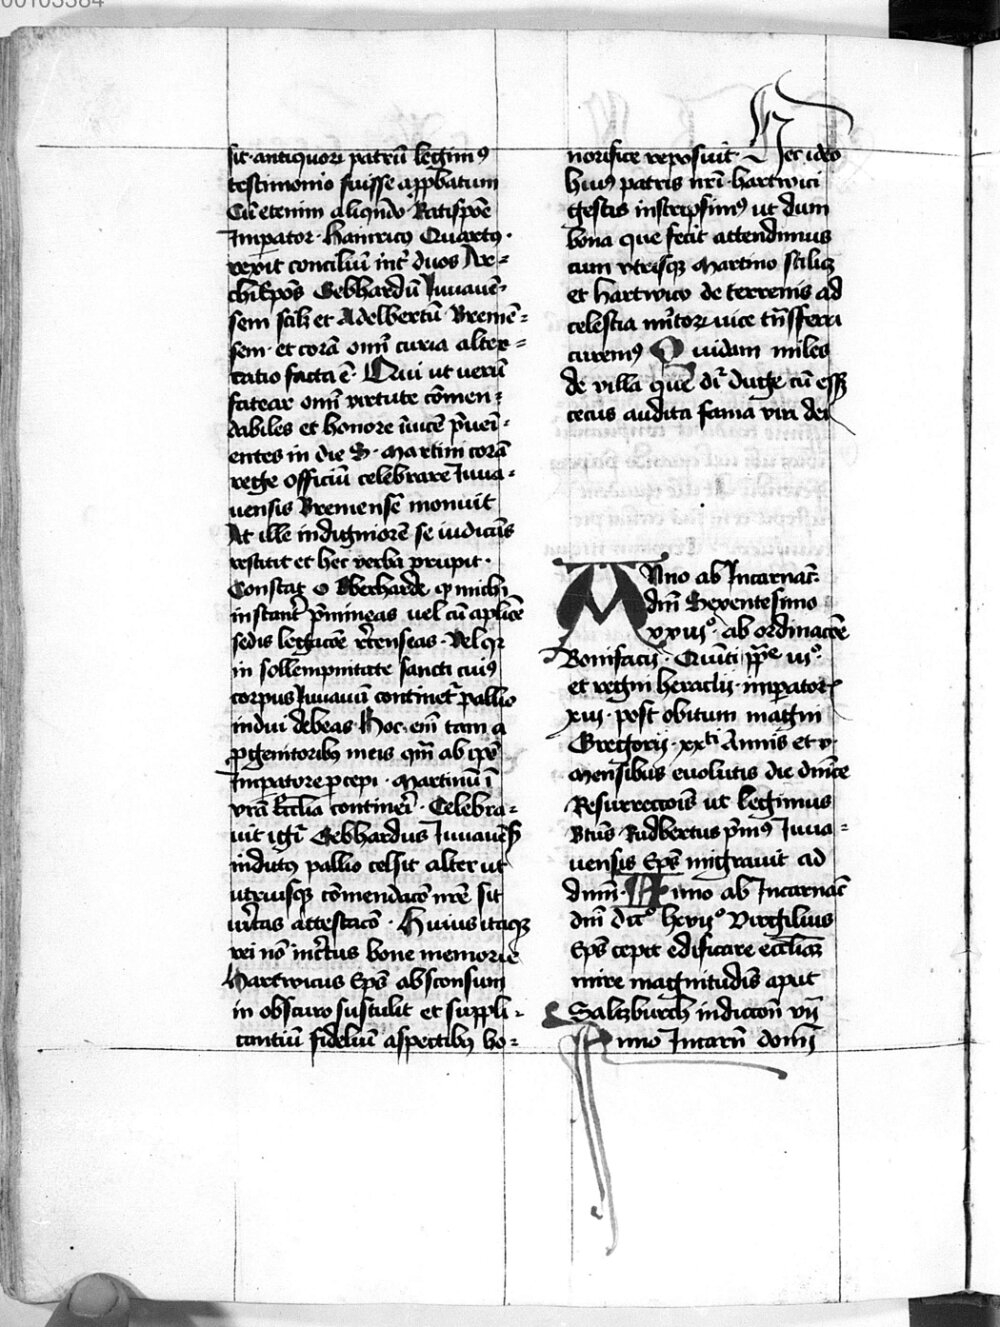 00103384
sit · antiquorū patrū legimꝰ
testimonio fuisse apꝓbatum
Cū etenim aliqn̄do · Ratispōe
Imperator · Hainricꝰ Quartꝰ ·
rexit conciliū int̄ duos Ar=
chiēpōs Gebhardū Juuauē=
sem scilz et Adelbertū · Bremē=
sem · et corā om̄i curia alter=
catio facta ē · Qui ut uerū
fatear om̄i virtute cōmen=
dabiles et honore īuicē p̄uei=
entes in die S · Martini corā
rege officiū celebrare Juua=
uensis Bremensē monuit
At ille indigniorē se iudicās
restitit et hec verba prupit ·
Constat o Eberharde ꝙ michi
instant̄ p̄mineas uel cū aplīce
sedis legacōe
in sollempnitate sancti cuiꝰ
corpus Juuauū continet̄ pallio
indui debeas Hoc · em̄ tam a
ꝓgenitoribus meis qm̄ ab ip̄o
Imperatore percepi · Martinū ī
vrā Eccl̄ia contineri · Celebra=
uit igr̄ Gebhardus Juuauēs
indutꝰ pallio cessit alter ut
utriusqꝫ cōmendacō nr̄e sit
ūitas attestacō · Huius itaqꝫ
rei nō inc̄tus bone memorie
Hartwicus Ep̄s absconsum
in obscuro sustulit et suppli=
cantiū fideliū aspectibꝰ ho=
norifice reposuit · Nec ideo
huiꝰ patris nr̄i · hartwici
gestis inscripsimꝰ ut dum
bona que fecit attendimus
cum utrisqꝫ Martino scilicꝫ
et hartwico de terrenis ad
celestia transferri
curemꝰ Quidam miles
de villa que dr̄ cū esset
cecus audita fama viri dei
Anno ab Incarnac̄
dnī Sexcentesimo
xxiiiº · ab ordinacōe
Bonifacii · Quīti pp̄e iiiº
et regni heraclii · imperatorꝭ
xiii · post obitum magni
Gregorii · xxti Annis et v
mensibus euolutis die dn̄ice
Resurrectois ut legimus
Btūs · Rudbertus p̄mꝰ Juua=
uensis Ep̄s migrauit ad
dnm̄ · Anno ab Incarnac̄
dnī dccº lxviiº Virgilius
Ep̄s cepit edificare eccl̄iaꝫ
mire magnitudis aput
Saltzburch indiccōn vii
Anno Incarn̄ domī